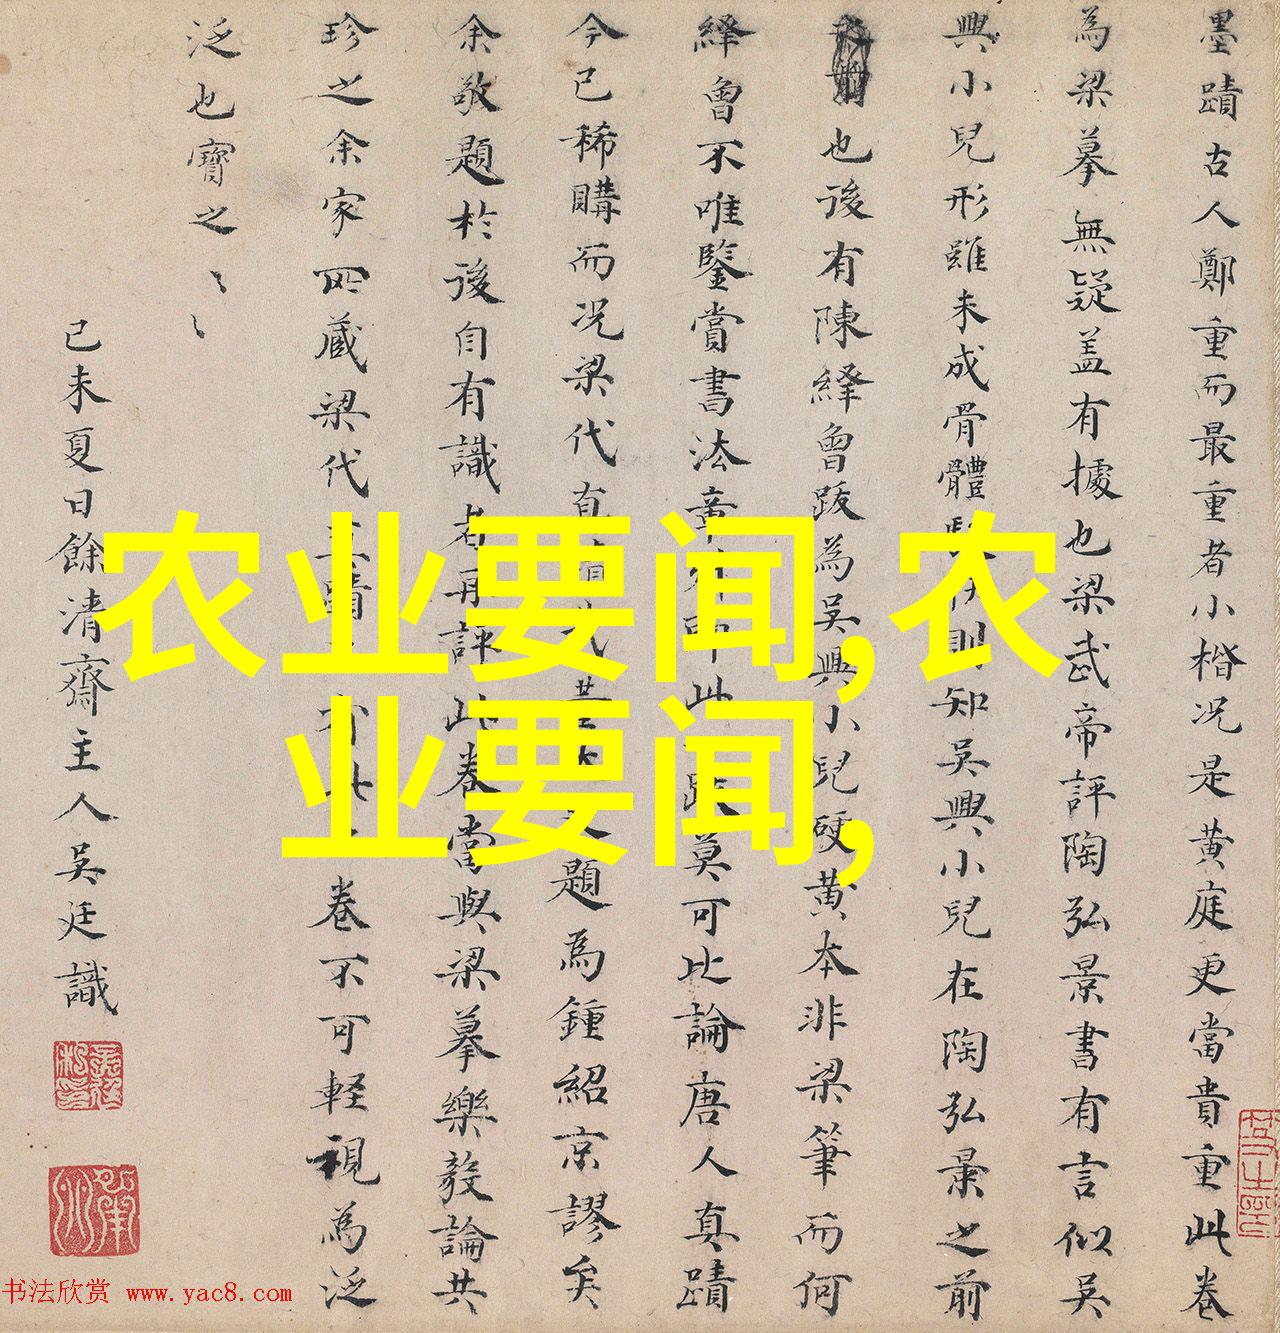 墨蹟古人鄭重而最重者小楷况是黄庭更當貴重此卷
為梁摹無疑盖有據也梁武帝評陶弘景書有言似吴
興小兒形雖未成骨體則知吴興小兒在陶弘景之前
也後有陳繹曾跋為吴興小兒硬黄本非梁筆而何
繹曾不唯鑒賞書法章此跋莫可比論唐人真蹟
今已稀購而况梁代題為鍾紹京謬矣
余敬題於後自有識者再評此卷當與梁摹樂毅論共
珍之余家所藏梁代真蹟卷不可軽視為泛
泛也寶之〻〻
己未夏日餘清齋主人吴廷識
农业要闻,农
业要闻,
书法欣赏 www.yac8.com